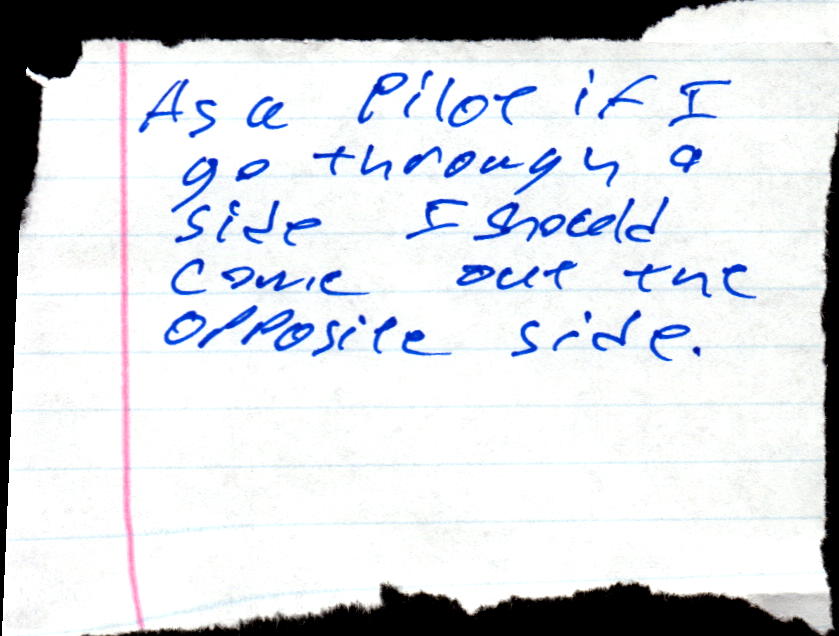 As a Pilot if I
go through a
side I should
come out the
opposite side.